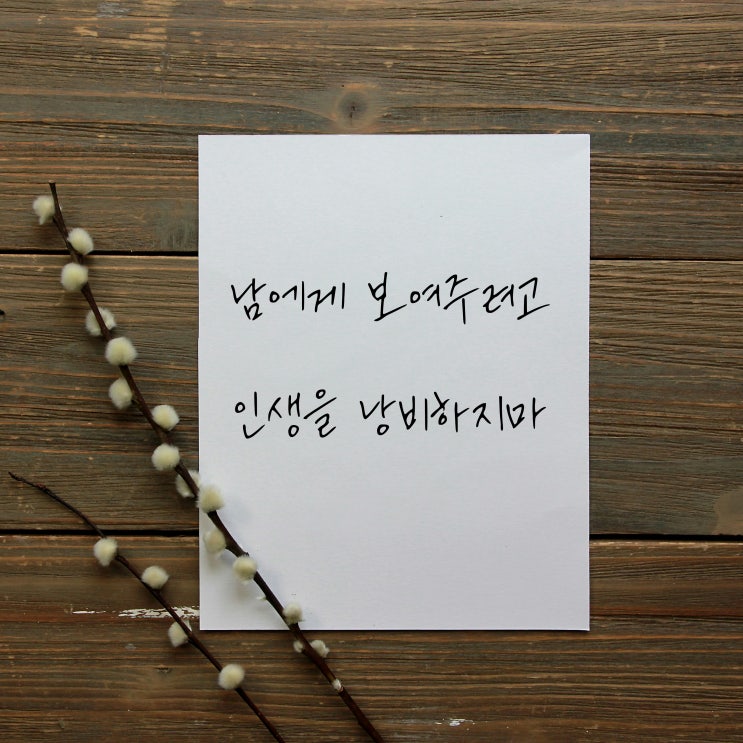 남에게 보여주려고
인생을 낭비하지마